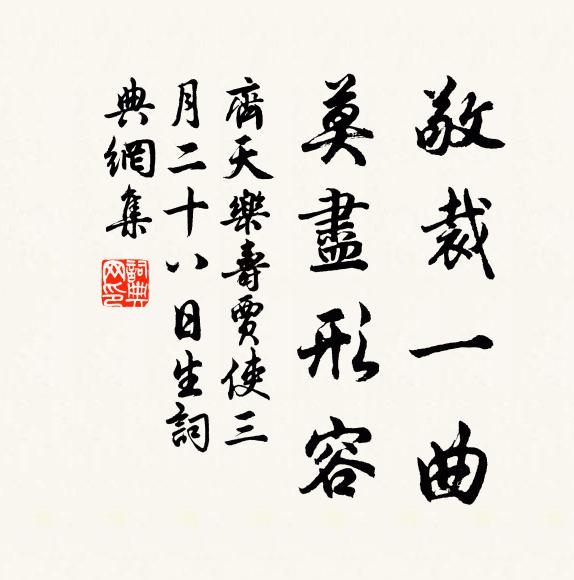 敬裁一曲
莫盡形容
齊天樂壽賈使三
月二十八日生詞
典網集
詞典
网印